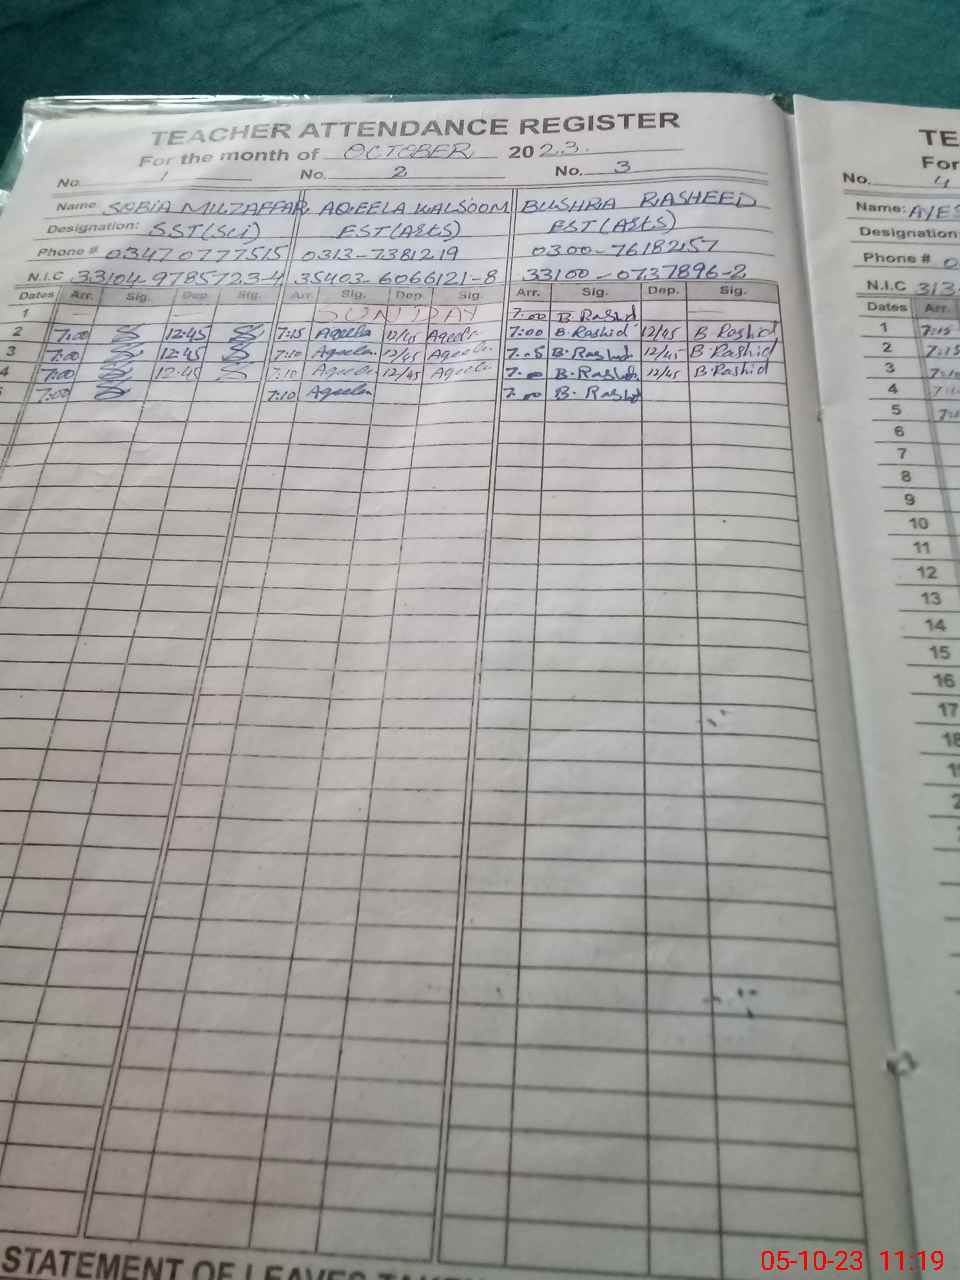 TEACHER ATTENDANCE REGISTER
For the month of OCTOBER 2023.
No. 1 No. 2 No. 3
Name SOBIA MUZAFFAR AQEELA KALSOOM BUSHRA RASHEED
Designation: SST(Sci) EST(A&S) EST(A&S)
Phone # 03470777515 0313-7381219 0300-7618257
N.I.C 33104-9785723-4 35403-6066121-8 33100-0737896-2
Dates Arr. Sig. Dep. Sig. Arr. Sig. Dep. Sig. Arr. Sig. Dep. Sig.
1 — — SUNDAY 7:00 B.Rashid —
2 7:00 12:45 7:15 Aqeela 12/45 Aqeela 7:00 B.Rashid 12/45 B Rashid
3 7:00 12:45 7:10 Aqeela 12/45 Aqeela 7:05 B.Rashid 12/45 B.Rashid
4 7:00 12:45 7:10 Aqeela 12/45 Aqeela 7:00 B.Rashid 12/45 B.Rashid
5 7:00 7:10 Aqeela 7:00 B. Rashid
STATEMENT OF LEAVES
TE
For
No. 4
Name: AYES
Designation
Phone # 0
N.I.C 313
Dates Arr.
1 7:15
2 7:15
3 7:10
4
5
6
7
8
9
10
11
12
13
14
15
16
17
18
05-10-23 11:19